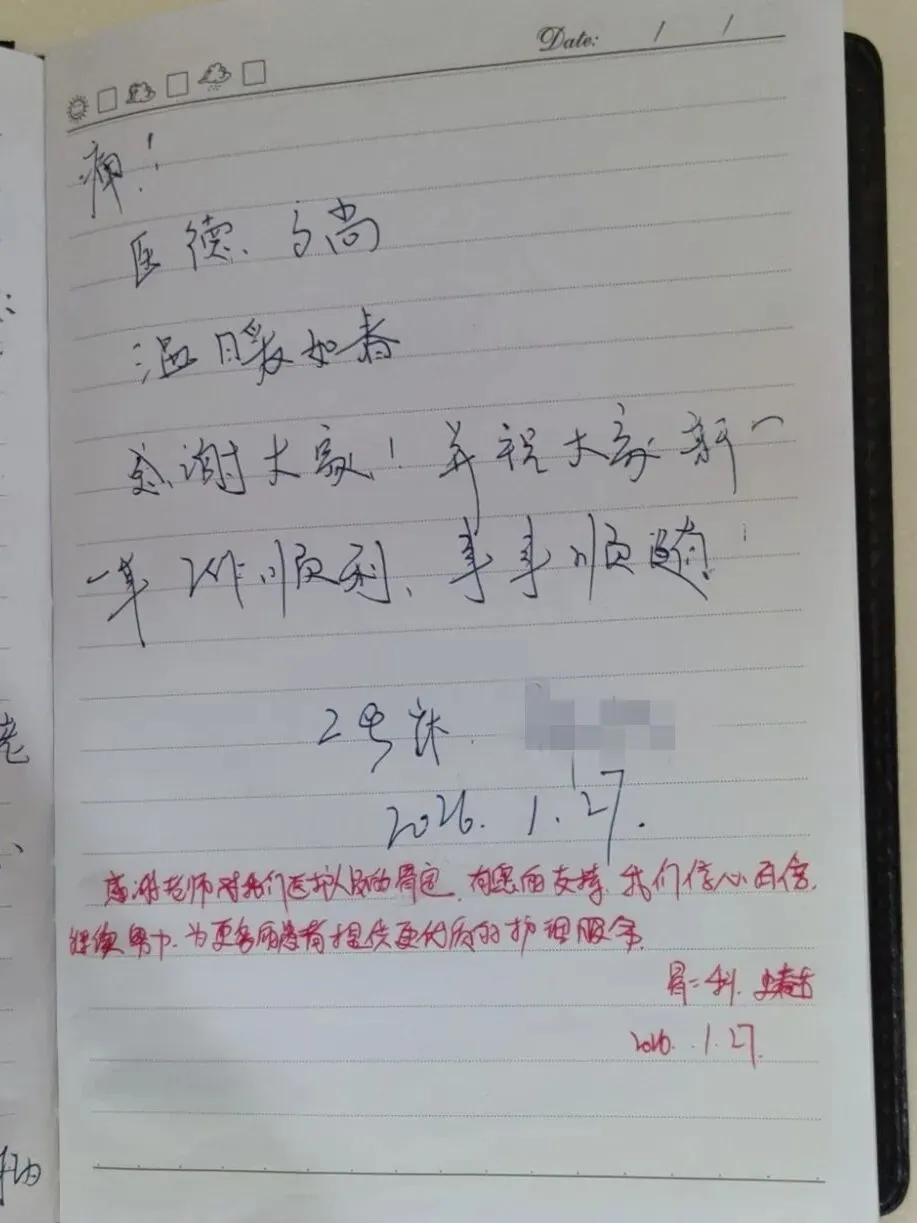 Date: / /
痛！
医德高尚
温暖如春
感谢大家！并祝大家新一
年工作顺利、事事顺遂！
2号床.
2026. 1. 27.
感谢老师对我们医护人员的肯定, 有您的支持, 我们信心百倍,
继续努力, 为更多的患者提供更优质的护理服务.
骨二科.
2026. 1. 27.